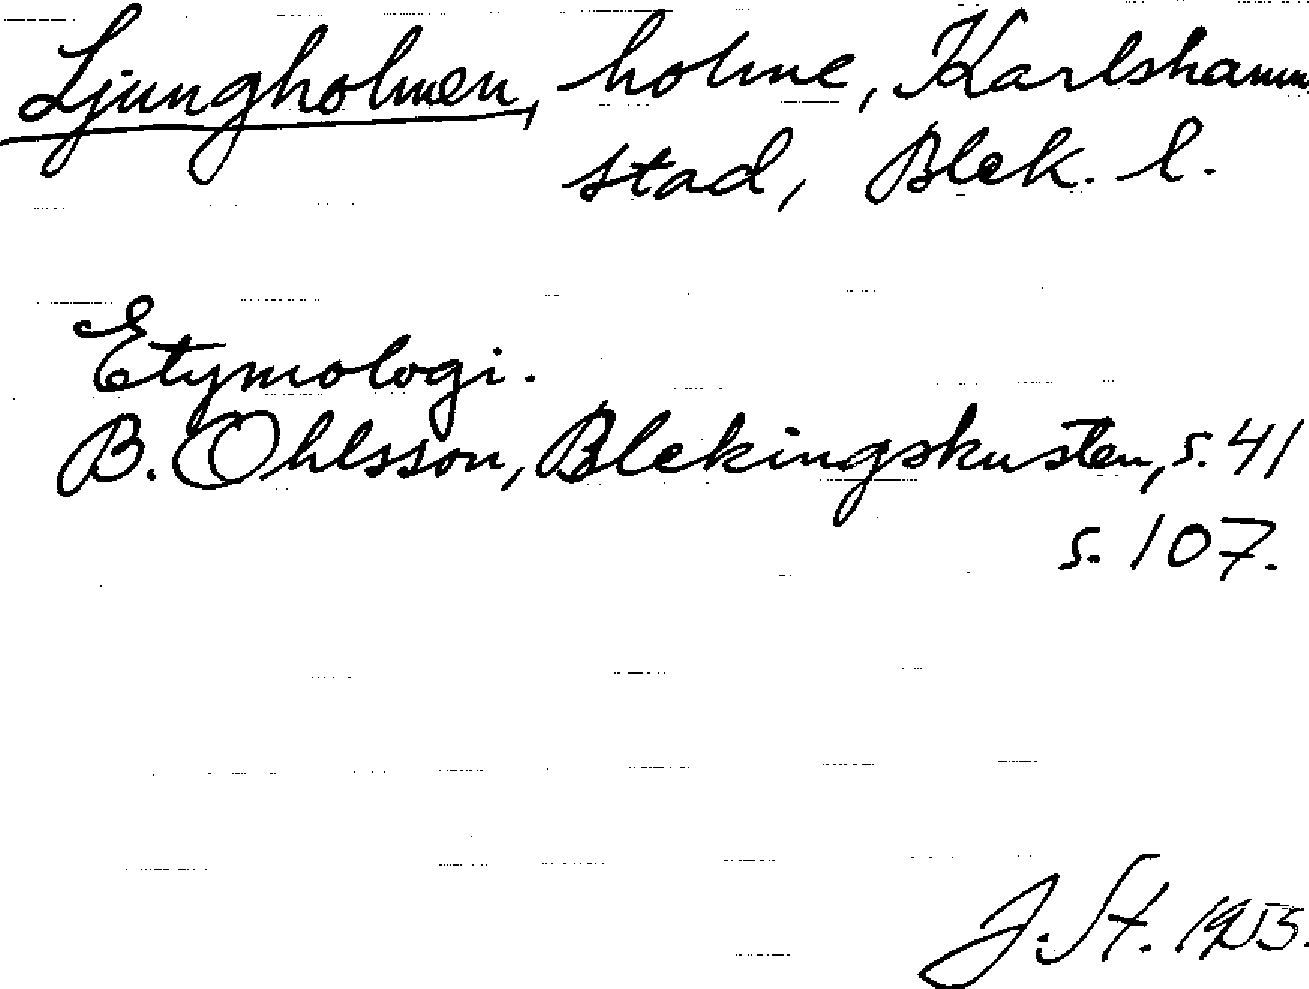 Ljungholmen, holme, Karlshamn
stad, Blek. l.
Etymologi.
B. Ohlsson, Blekingskusten, s. 41
s. 107.
J. St. 1953.